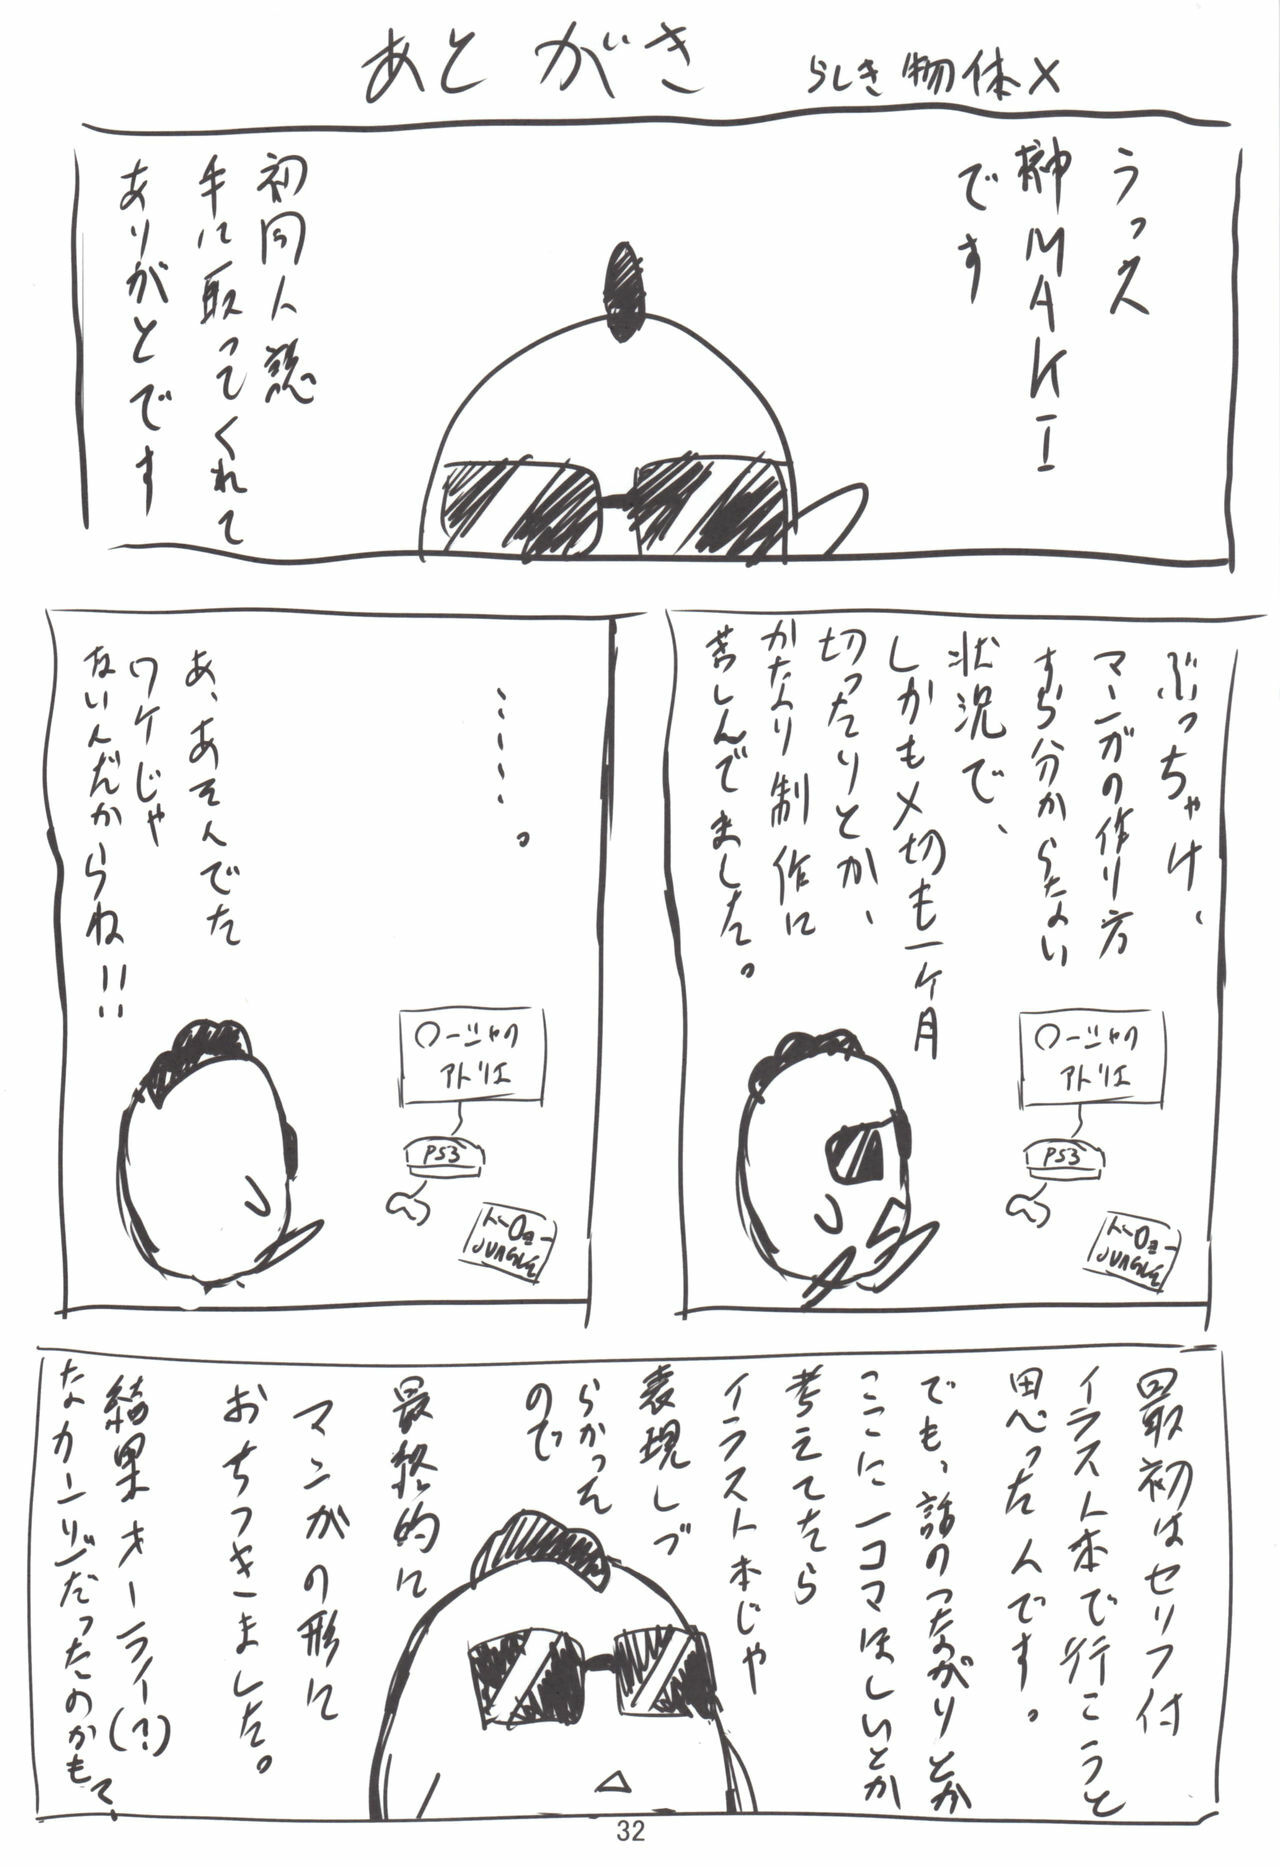 あとがき
らしき物体X
うっス
榊MAKI
です
初同人誌
手に取ってくれて
ありがとです
ぶっちゃけ、
マンガの作り方
すら分からない
状況で、
しかも〆切も一ヶ月
切ったりとか、
かなり制作に
苦しんでました。
ロージャの
アトリエ
PS3
JUNGLE
・・・・・。
あ、あそんでた
ワケじゃ
ないんだからね!!
ロージャの
アトリエ
PS3
JUNGLE
最初はセリフ付
イラスト本で行こうと
思ったんです。
でも、話のつながりとか
ここに一コマほしいとか
考えてたら
イラスト本じゃ
表現しづ
らかった
ので
最終的に
マンガの形に
おちつきました。
結果オーライ(?)
なカンジだったのかもて、
32